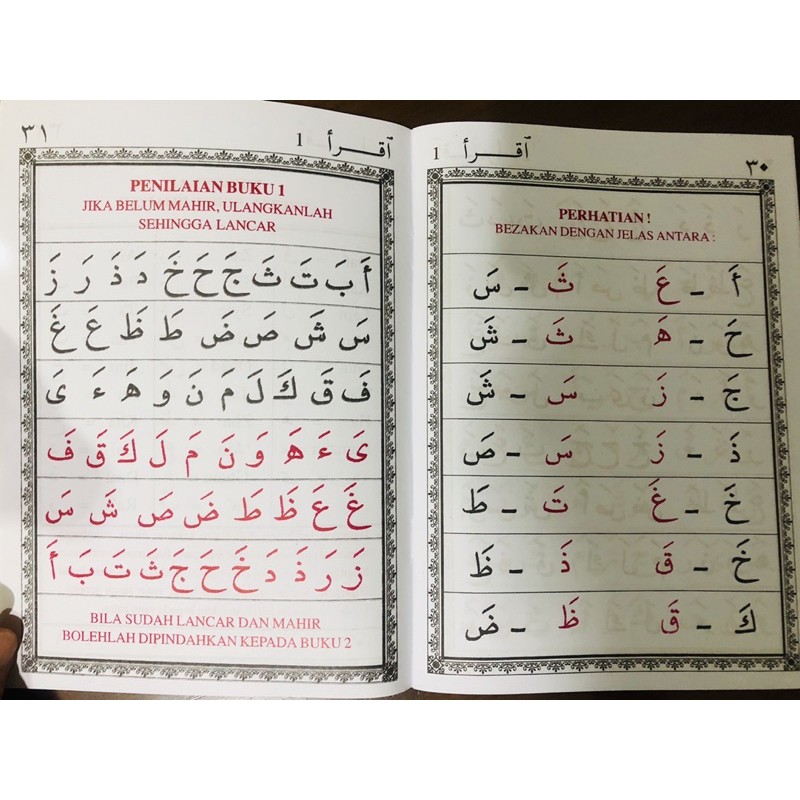 ٣٠
ٱقرأ 1
PERHATIAN !
BEZAKAN DENGAN JELAS ANTARA :
أَ - عَ ثَ - سَ
حَ - هَ ثَ - شَ
جَ - زَ سَ - شَ
ذَ - زَ سَ - صَ
خَ - غَ تَ - طَ
خَ - قَ ذَ - ظَ
كَ - قَ ظَ - ضَ
ٱقرأ 1
٣١
PENILAIAN BUKU 1
JIKA BELUM MAHIR, ULANGKANLAH
SEHINGGA LANCAR
أَ بَ تَ ثَ جَ حَ خَ دَ ذَ رَ زَ
سَ شَ صَ ضَ طَ ظَ عَ غَ
فَ قَ كَ لَ مَ نَ وَ هَ ءَ ىَ
ىَ ءَ هَ وَ نَ مَ لَ كَ قَ فَ
غَ عَ ظَ طَ ضَ صَ شَ سَ
زَ رَ ذَ دَ خَ حَ جَ ثَ تَ بَ أَ
BILA SUDAH LANCAR DAN MAHIR
BOLEHLAH DIPINDAHKAN KEPADA BUKU 2